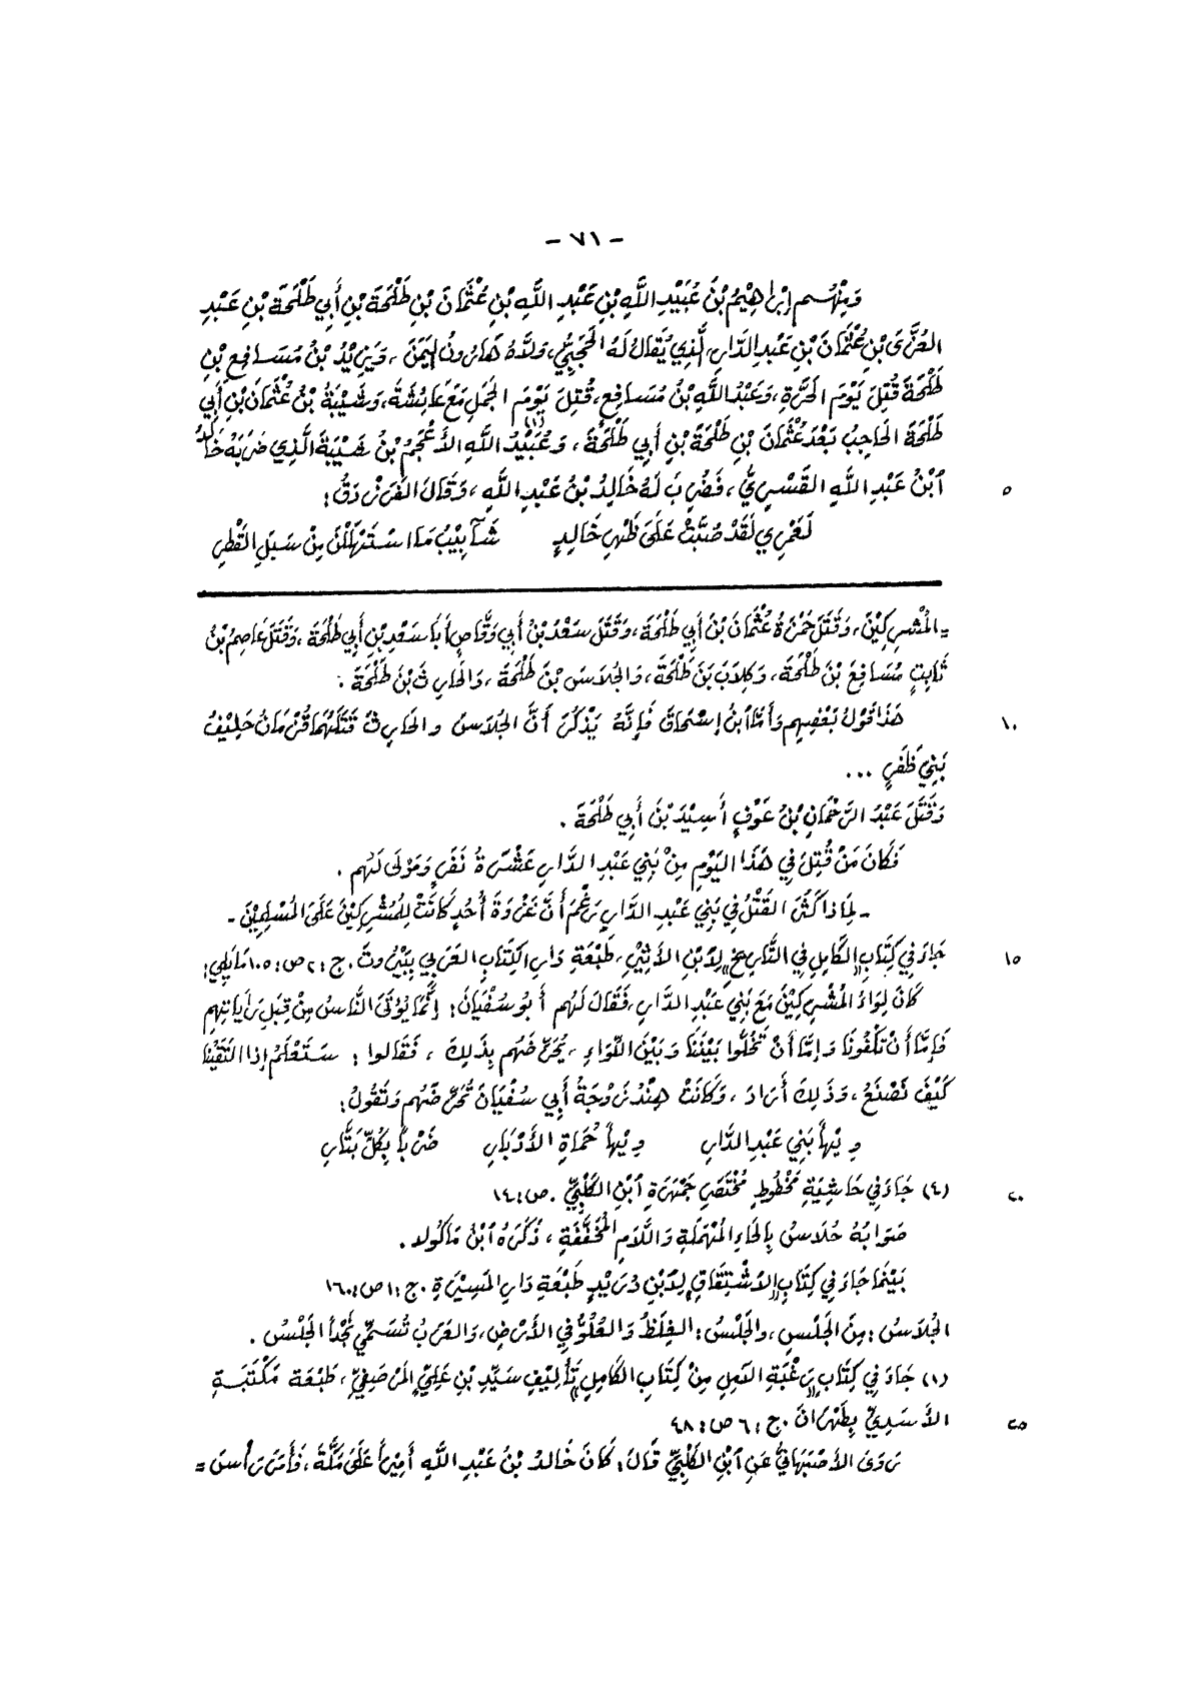 - ٧١ -
وَمِنْهُم إِبْرَاهِيْمُ بْنُ عُبَيْدِ اللَّهِ بْنِ عَبْدِ اللَّهِ بْنِ عُثْمَانَ بْنِ طَلْحَةَ بْنِ أَبِي طَلْحَةَ بْنِ عَبْدِ
العُزَّى بْنِ عُثْمَانَ بْنِ عَبْدِ الدَّارِ، الَّذِي يُقَالُ لَهُ الحَجَبِيُّ، وَلَّاهُ هَارُونُ اليَمَنَ، وَيَزِيْدُ بْنُ مُسَافِعِ بْنِ
طَلْحَةَ قُتِلَ يَوْمَ الحَرَّةِ، وَعَبْدُ اللَّهِ بْنُ مُسَافِعٍ، قُتِلَ يَوْمَ الجَمَلِ مَعَ عَائِشَةَ، وَشَيْبَةُ بْنُ عُثْمَانَ بْنِ أَبِي
طَلْحَةَ الحَاجِبُ بَعْدَ عُثْمَانَ بْنِ طَلْحَةَ بْنِ أَبِي طَلْحَةَ، وَعُبَيْدُ اللَّهِ الأَعْجَمُ (١) بْنُ شَيْبَةَ الَّذِي ضَرَبَهُ خَالِدُ
ٱبْنُ عَبْدِ اللَّهِ القَسْرِيُّ، فَضُرِبَ لَهُ خَالِدُ بْنُ عَبْدِ اللَّهِ، وَقَالَ الفَرَزْدَقُ: ٥
لَعَمْرِي لَقَدْ صُبَّتْ عَلَى ظَهْرِ خَالِدٍ شَآبِيْبُ مَا اسْتَهْلَلْنَ مِنْ سَبَلِ القَطْرِ
= المُشْرِكِيْنَ، وَقَتَلَ حَمْزَةُ عُثْمَانَ بْنَ أَبِي طَلْحَةَ، وَقَتَلَ سَعْدُ بْنُ أَبِي وَقَّاصٍ أَبَا سَعْدِ بْنِ أَبِي طَلْحَةَ، وَقَتَلَ عَاصِمُ بْنُ
ثَابِتٍ مُسَافِعَ بْنَ طَلْحَةَ، وَكِلَابَ بْنَ طَلْحَةَ، وَالجُلَاسَ بْنَ طَلْحَةَ، وَالحَارِثَ بْنَ طَلْحَةَ.
هَذَا قَوْلُ بَعْضِهِم وَأَمَّا ٱبْنُ إِسْحَاقَ فَإِنَّهُ يَذْكُرُ أَنَّ الجُلَاسَ والحَارِثَ قَتَلَهُمَا قُزْمَانُ حَلِيْفُ ١٠
بَنِي ظَفَرٍ ...
وَقَتَلَ عَبْدُ الرَّحْمَانِ بْنُ عَوْفٍ أَسِيْدَ بْنَ أَبِي طَلْحَةَ.
فَكَانَ مَنْ قُتِلَ فِي هَذَا اليَوْمِ مِنْ بَنِي عَبْدِ الدَّارِ عَشْرَةُ نَفَرٍ وَمَوْلَى لَهُم.
- لِمَاذا كَثُرَ القَتْلُ فِي بَنِي عَبْدِ الدَّارِ رَغْمَ أَنَّ غَزْوَةَ أُحُدٍ كَانَتْ لِلْمُشْرِكِيْنَ عَلَى المُسْلِمِيْنَ -
جَاءَ فِي كِتَابِ «الكَامِلِ فِي التَّارِيْخِ» لِابْنِ الأَثِيْرِ، طَبْعَةِ دَارِ الكِتَابِ العَرَبِي بِبَيْرُوتَ. ج: ٢ ص: ١٠٥ مَا يَلِي: ١٥
كَانَ لِوَاءُ المُشْرِكِيْنَ مَعَ بَنِي عَبْدِ الدَّارِ، فَقَالَ لَهُم أَبُو سُفْيَانَ: إِنَّمَا يُؤتَى النَّاسُ مِنْ قِبَلِ رَايَاتِهِم
فَإِمَّا أَنْ تَكْفُونَا وَإِمَّا أَنْ تَخُلُّوا بَيْنَنَا وَبَيْنَ اللِّوَاءِ، يُحَرِّضُهُم بِذَلِكَ، فَقَالُوا: سَتَعْلَمُ إِذا التَقَيْنَا
كَيْفَ نَصْنَعُ، وَذَلِكَ أَرَادَ، وَكَانَتْ هِنْدُ زَوْجَةُ أَبِي سُفْيَانَ تُحَرِّضُهُم وَتَقُولُ:
وِيْهاً بَنِي عَبْدِ الدَّارِ وِيْهاً حُمَاةِ الأَدْبَارِ ضَرْباً بِكُلِّ بَتَّارِ
(٤) جَاءَ فِي حَاشِيَةِ مَخْطُوطِ مُخْتَصَرِ جَمْهَرَةِ ٱبْنِ الكَلْبِيِّ. ص: ١٤ ٢٠
صَوَابُهُ حُلَاسُ بِالحَاءِ المُهْمَلَةِ وَاللَّامِ المُخَفَّفَةِ، ذَكَرَهُ ٱبْنُ مَاكُولا.
بَيْنَمَا جَاءَ فِي كِتَابِ «الاشْتِقَاقِ» لِابْنِ دُرَيْدٍ طَبْعَةِ دَارِ المَسِيْرَةِ. ج: ١ ص: ١٦٠
الجُلَاسُ: مِنَ الجَلْسِ، والجَلْسُ: الغِلَظُ وَالعُلُوُّ فِي الأَرْضِ، وَالعَرَبُ تُسَمِّي نَجْداً الجَلْسُ.
(١) جَاءَ فِي كِتَابِ «رَغْبَةِ الآمِلِ مِنْ كِتَابِ الكَامِلِ» تَأْلِيْفِ سَيِّدِ بْنِ عَلِيٍّ المَرْصَفِيِّ، طَبْعَة مَكْتَبَةِ
الأَسَدِيِّ بِطَهْرَانَ. ج: ٦ ص: ٤٨ ٢٥
رَوَى الأَصْبَهَانِيُّ عَنِ ٱبْنِ الكَلْبِيِّ قَالَ: كَانَ خَالِدُ بْنُ عَبْدِ اللَّهِ أَمِيْراً عَلَى مَكَّةَ، فَأَمَرَ رَأْسَ =